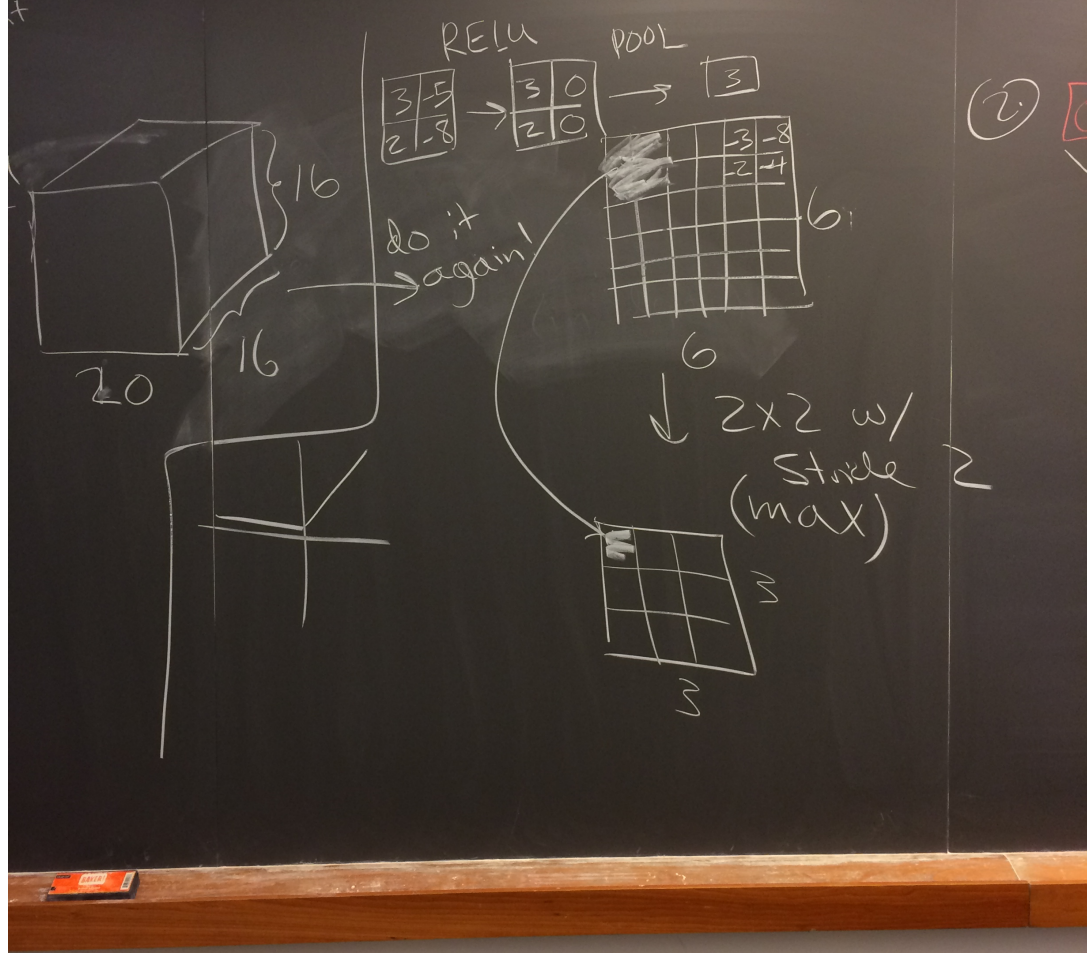 RELU POOL
3 -5
2 -8
3 0
2 0
3
-3 -8
-2 -4
6
6
16
16
20
do it
again!
2x2 w/
Stride 2
(max)
3
3
2.